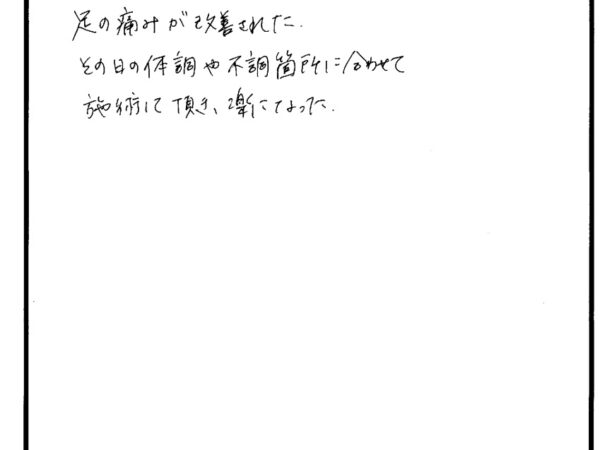 足の痛みが改善された.
その日の体調や不調箇所に合わせて
施術して頂き、楽になった.